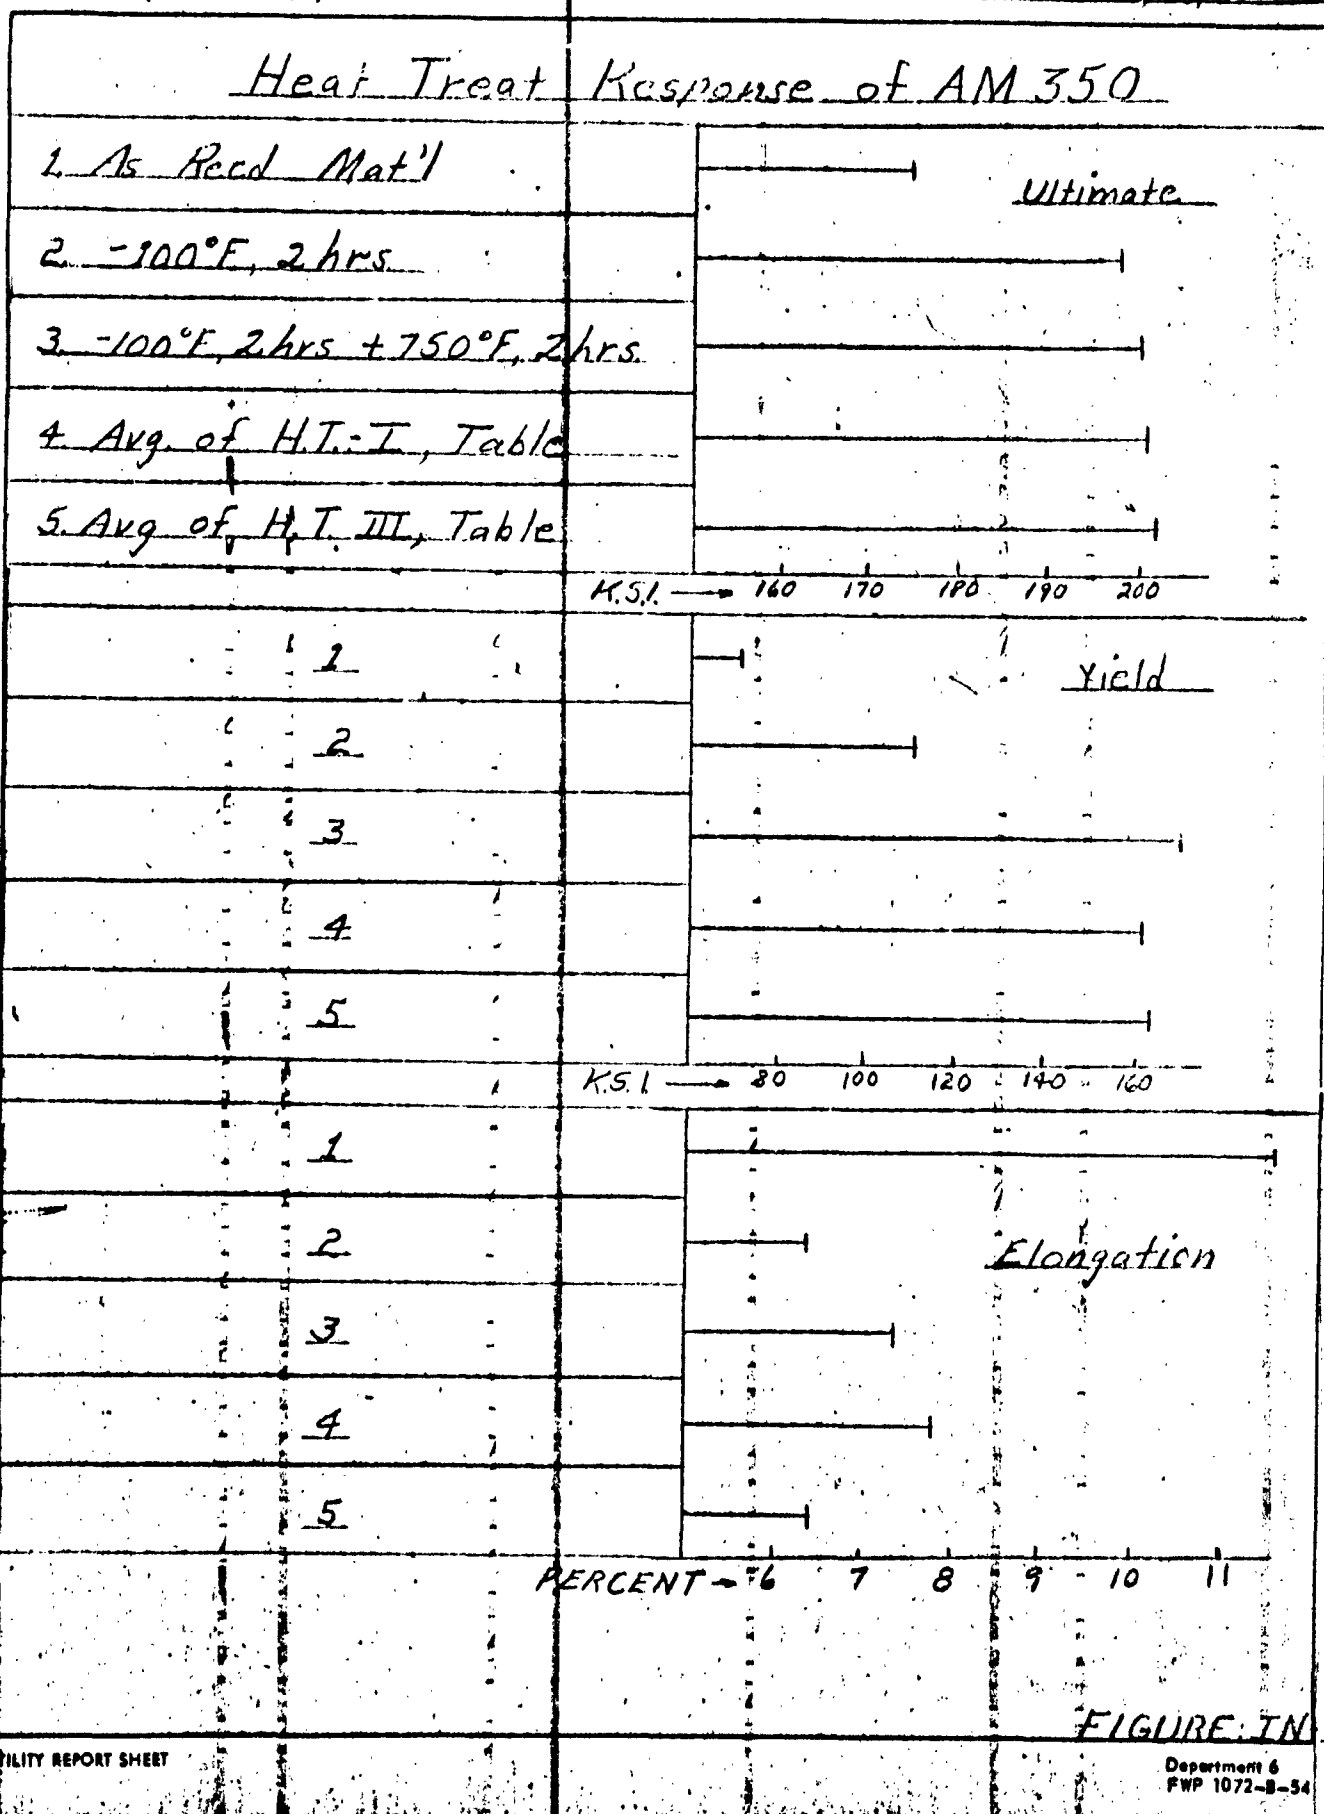 Heat Treat Response of AM 350
1. As Recd Mat'l
Ultimate
2. -100°F, 2 hrs.
3. -100°F, 2 hrs + 750°F, 2 hrs.
4. Avg. of H.T.-I, Table
5. Avg of H.T. III, Table
K.S.I. → 160 170 180 190 200
1
Yield
2
3
4
5
K.S.I. → 80 100 120 140 160
1
2
Elongation
3
4
5
PERCENT → 6 7 8 9 10 11
FIGURE: IN
TILITY REPORT SHEET
Department 6
FWP 1072-8-54